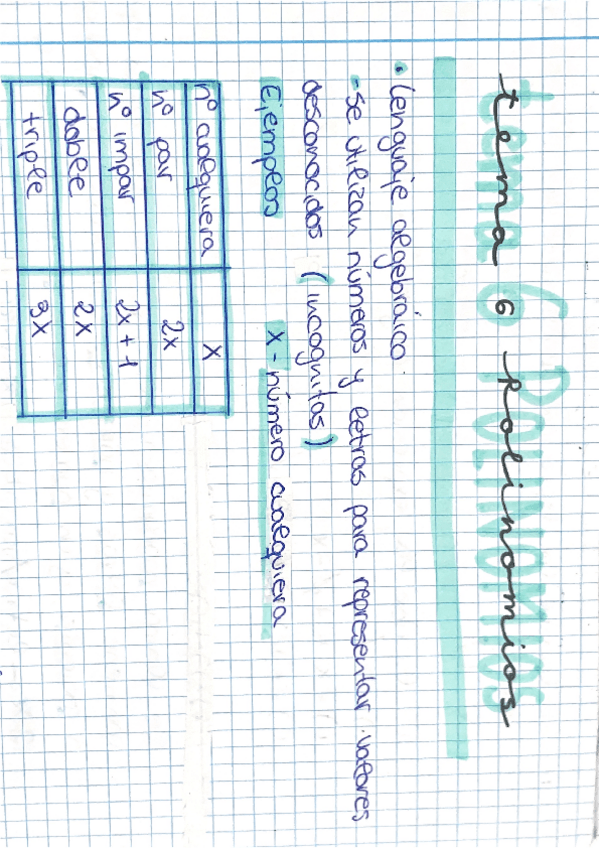 tema 6 Polinomios
• Lenguaje algebraico.
- se utilizan números y letras para representar valores
desconocidos (incognitas)
Ejemplos x - número cualquiera
nº cualquiera x
nº par 2x
nº impar 2x + 1
doble 2x
triple 3x